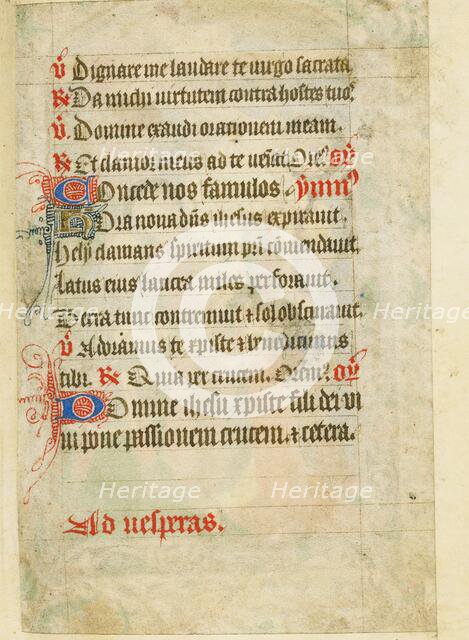 V Dignare me laudare te virgo sacrata
R Da michi virtutem contra hostes tuos.
V. Domine exaudi orationem meam.
R Et clamor meus ad te veniat. Ore9. oro
Concede nos famulos ympn9
Hora nona dns ihesus expirauit.
Hely clamans spiritum pri comendauit.
Latus eius lancea miles perforauit.
Terra tunc contremuit & sol obscurauit.
V Adoramus te xpiste & benedicimus
tibi. R Quia per crucem. Orem9. oro
Domine ihesu xpiste fili dei vi
ui pone passionem crucem. & cetera.
Ad uesperas.
Heritage
Heritage
Heritage
Heritage
Heritage
Heritage
Heritage
Heritage